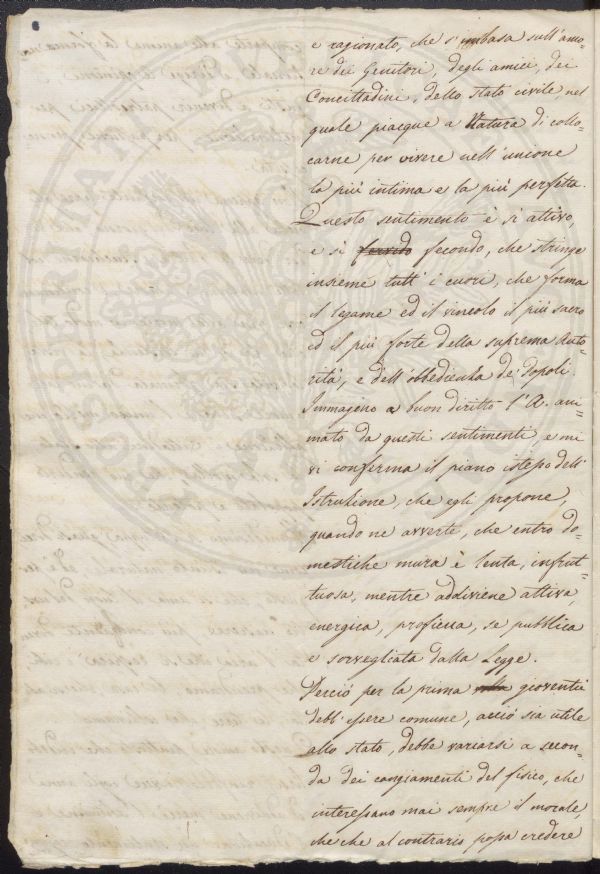 e ragionato, che s'imbasa sull'amo-
re dei Genitori, degli amici, dei
Concittadini, dello stato civile, nel
quale piacque a Natura di collo-
carne per vivere nell'unione
la più intima e la più perfetta.
Questo sentimento è sì attivo,
e sì fervido fecondo, che stringe
insieme tutt'i cuori, che forma
il legame ed il vincolo il più sacro
ed il più forte della suprema Auto-
rità, e dell'obbedienza de' Popoli.
Immagino a buon diritto l'A. ani-
mato da questi sentimenti, e mi
vi conferma il piano istesso dell'
Istruzione, che egli propone,
quando ne avverte, che entro do-
mestiche mura è lenta, infrut-
tuosa, mentre addiviene attiva,
energica, proficua, se pubblica
e sorvegliata dalla Legge.
Perciò per la prima gioventù
dell'essere comune, acciò sia utile
allo stato, debbe variarsi a secon-
da dei cangiamenti del fisico, che
interessano mai sempre il morale,
che che al contrario possa credere
PROSPERITATI